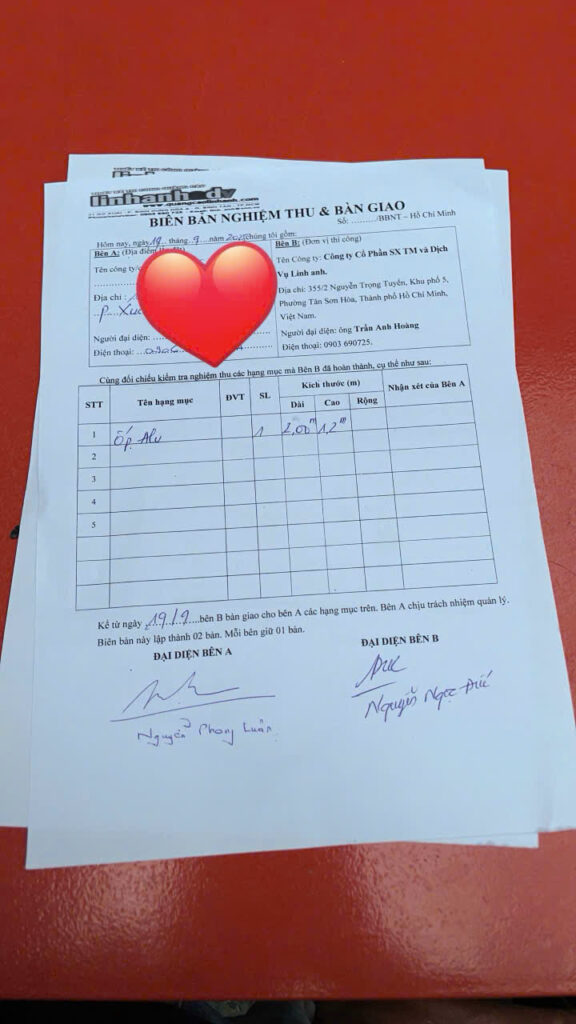 linhanhadv
www.quangcaolinhanh.com
BIÊN BẢN NGHIỆM THU & BÀN GIAO
Số: ........../BBNT – Hồ Chí Minh
Hôm nay, ngày 19 tháng 9 năm 2025 chúng tôi gồm:
Bên A: (Địa điểm
Tên công ty/
Địa chỉ :
P. Xu
Người đại diện:
Điện thoại:
Bên B: (Đơn vị thi công)
Tên Công ty: Công ty Cổ Phần SX TM và Dịch
Vụ Linh anh.
Địa chỉ: 355/2 Nguyễn Trọng Tuyển, Khu phố 5,
Phường Tân Sơn Hòa, Thành phố Hồ Chí Minh,
Việt Nam.
Người đại diện: ông Trần Anh Hoàng
Điện thoại: 0903 690725.
Cùng đối chiếu kiểm tra nghiệm thu các hạng mục mà Bên B đã hoàn thành, cụ thể như sau:
STT Tên hạng mục ĐVT SL Kích thước (m) Nhận xét của Bên A
Dài Cao Rộng
1 Ốp Alu 1 2,00m 1,2m
2
3
4
5
Kể từ ngày 19/9 bên B bàn giao cho bên A các hạng mục trên. Bên A chịu trách nhiệm quản lý.
Biên bản này lập thành 02 bản. Mỗi bên giữ 01 bản.
ĐẠI DIỆN BÊN A
ĐẠI DIỆN BÊN B
Đức
Nguyễn Phong Luân
Nguyễn Ngọc Đức